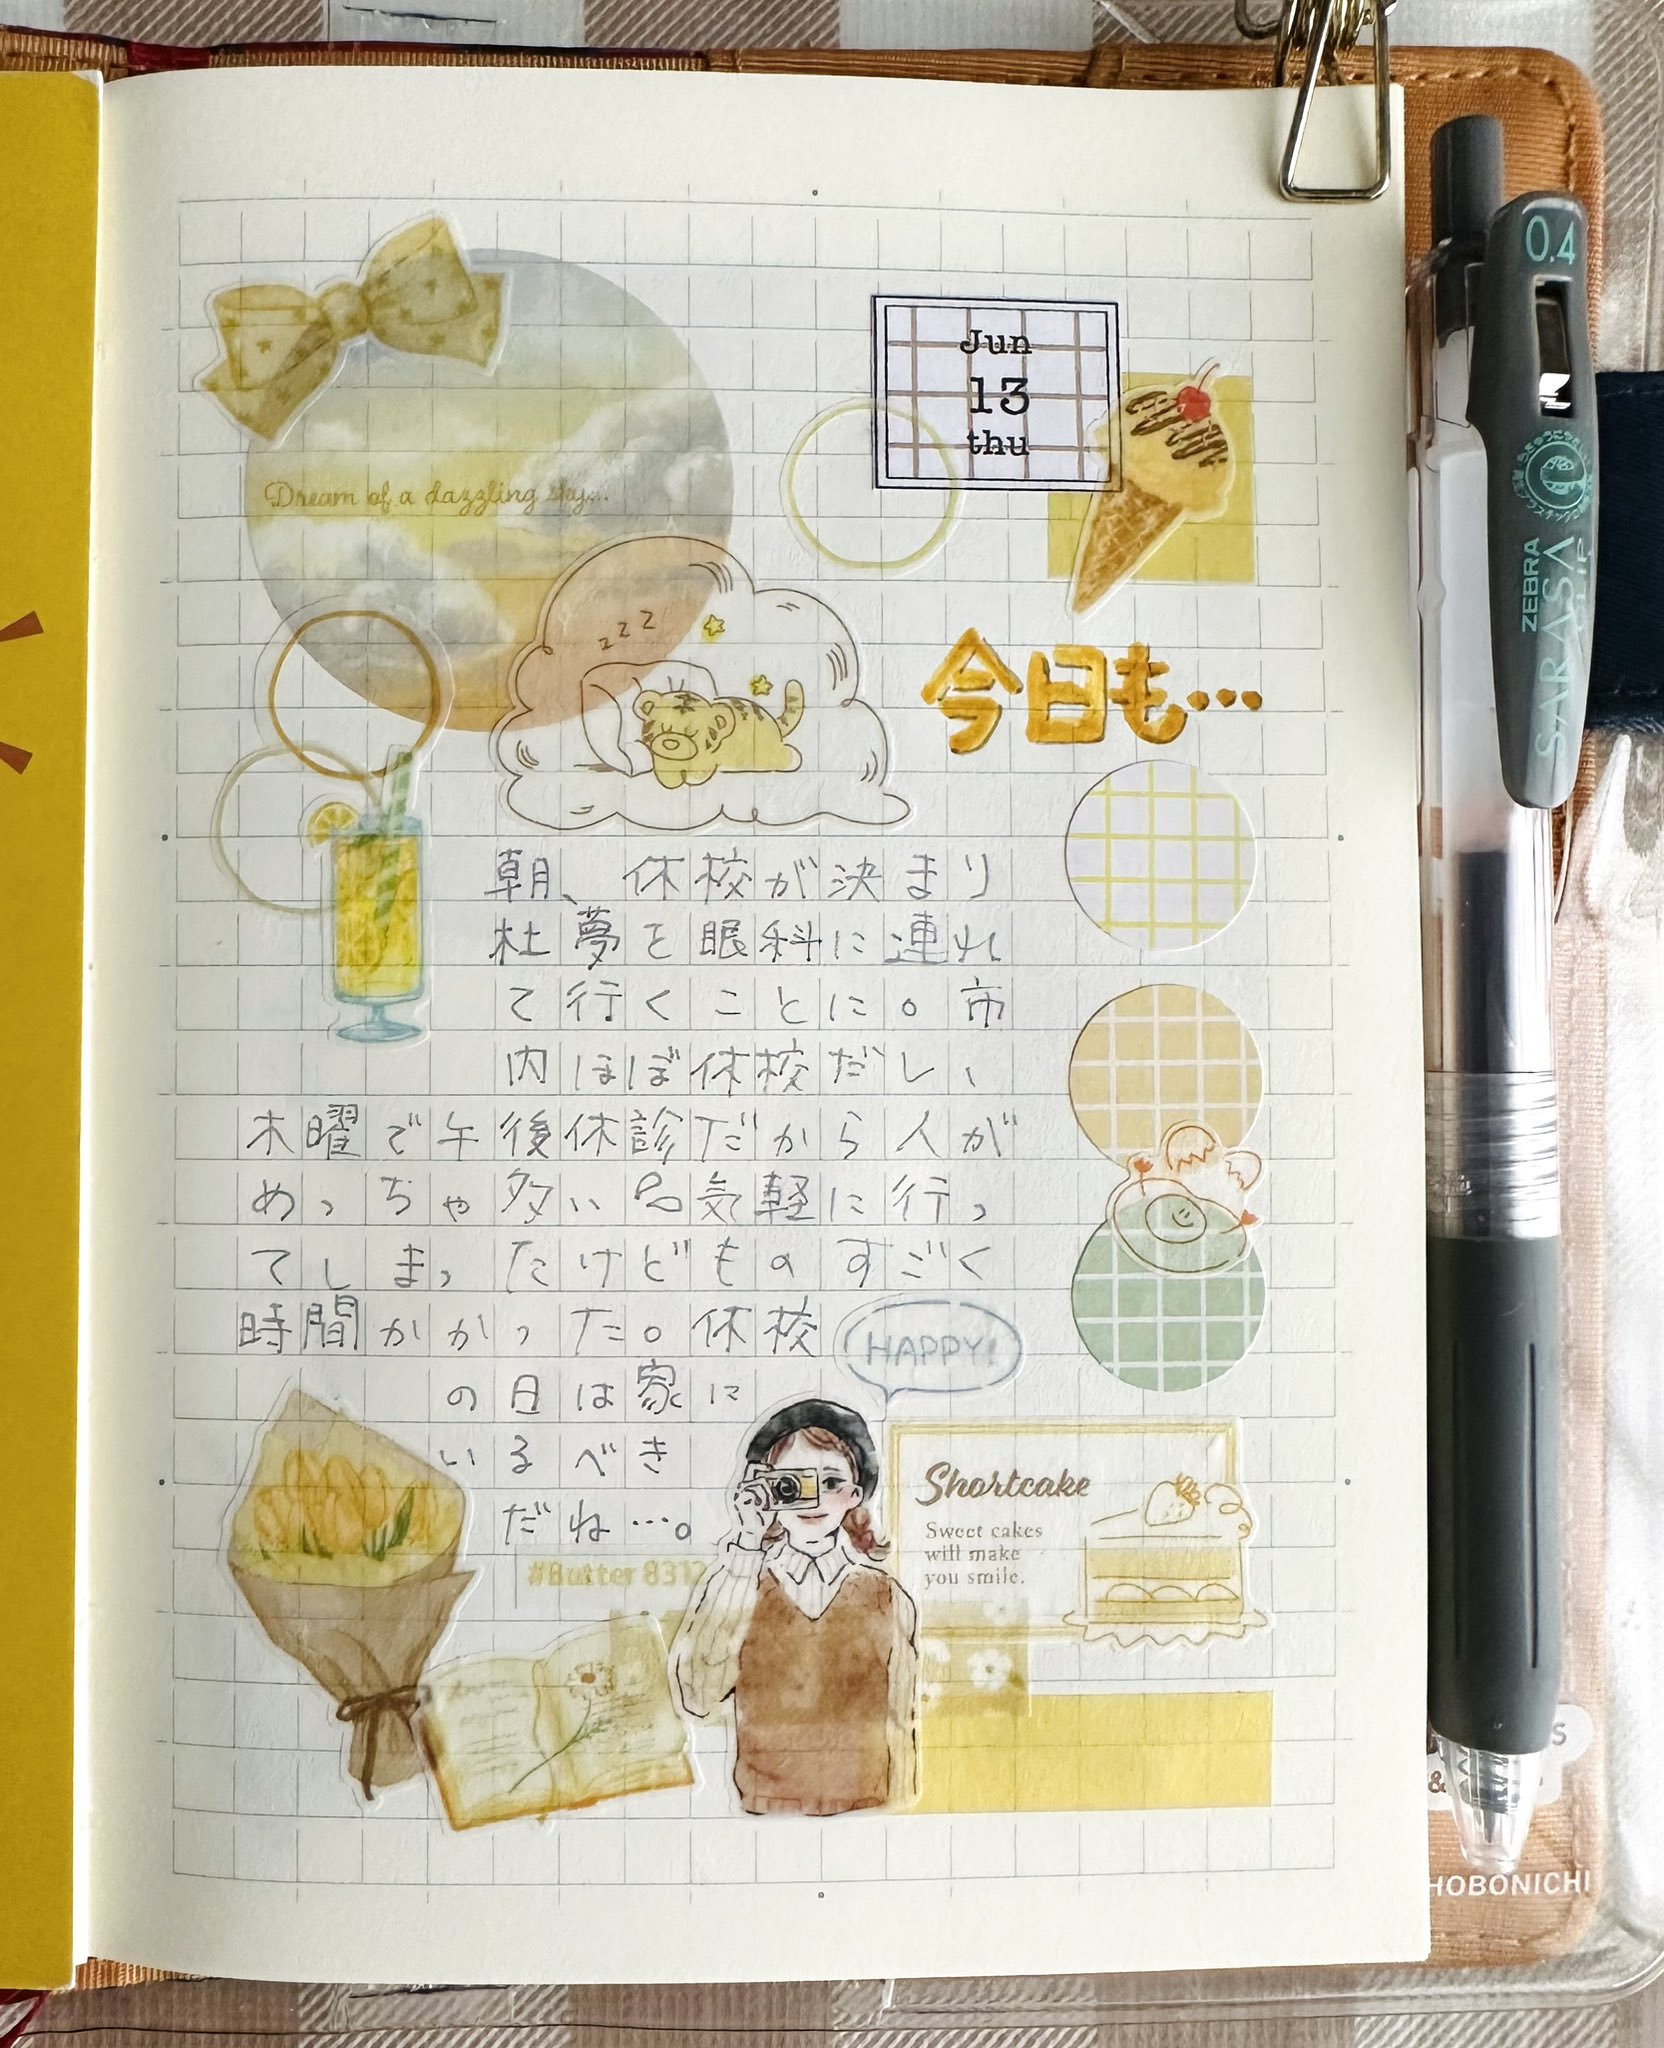 Dream of a dazzling sky...
Jun
13
thu
zzz
今日も…
朝、休校が決まり
杜夢を眼科に連れ
て行くことに。市
内ほぼ休校だし、
木曜で午後休診だから人が
めっちゃ多い 気軽に行っ
てしまったけどものすごく
時間かかった。休校
の日は家に
いるべき
だね…。
HAPPY!
#Butter 8312
Shortcake
Sweet cakes
will make
you smile.
0.4
ZEBRA
SARASA
CLIP
HOBONICHI